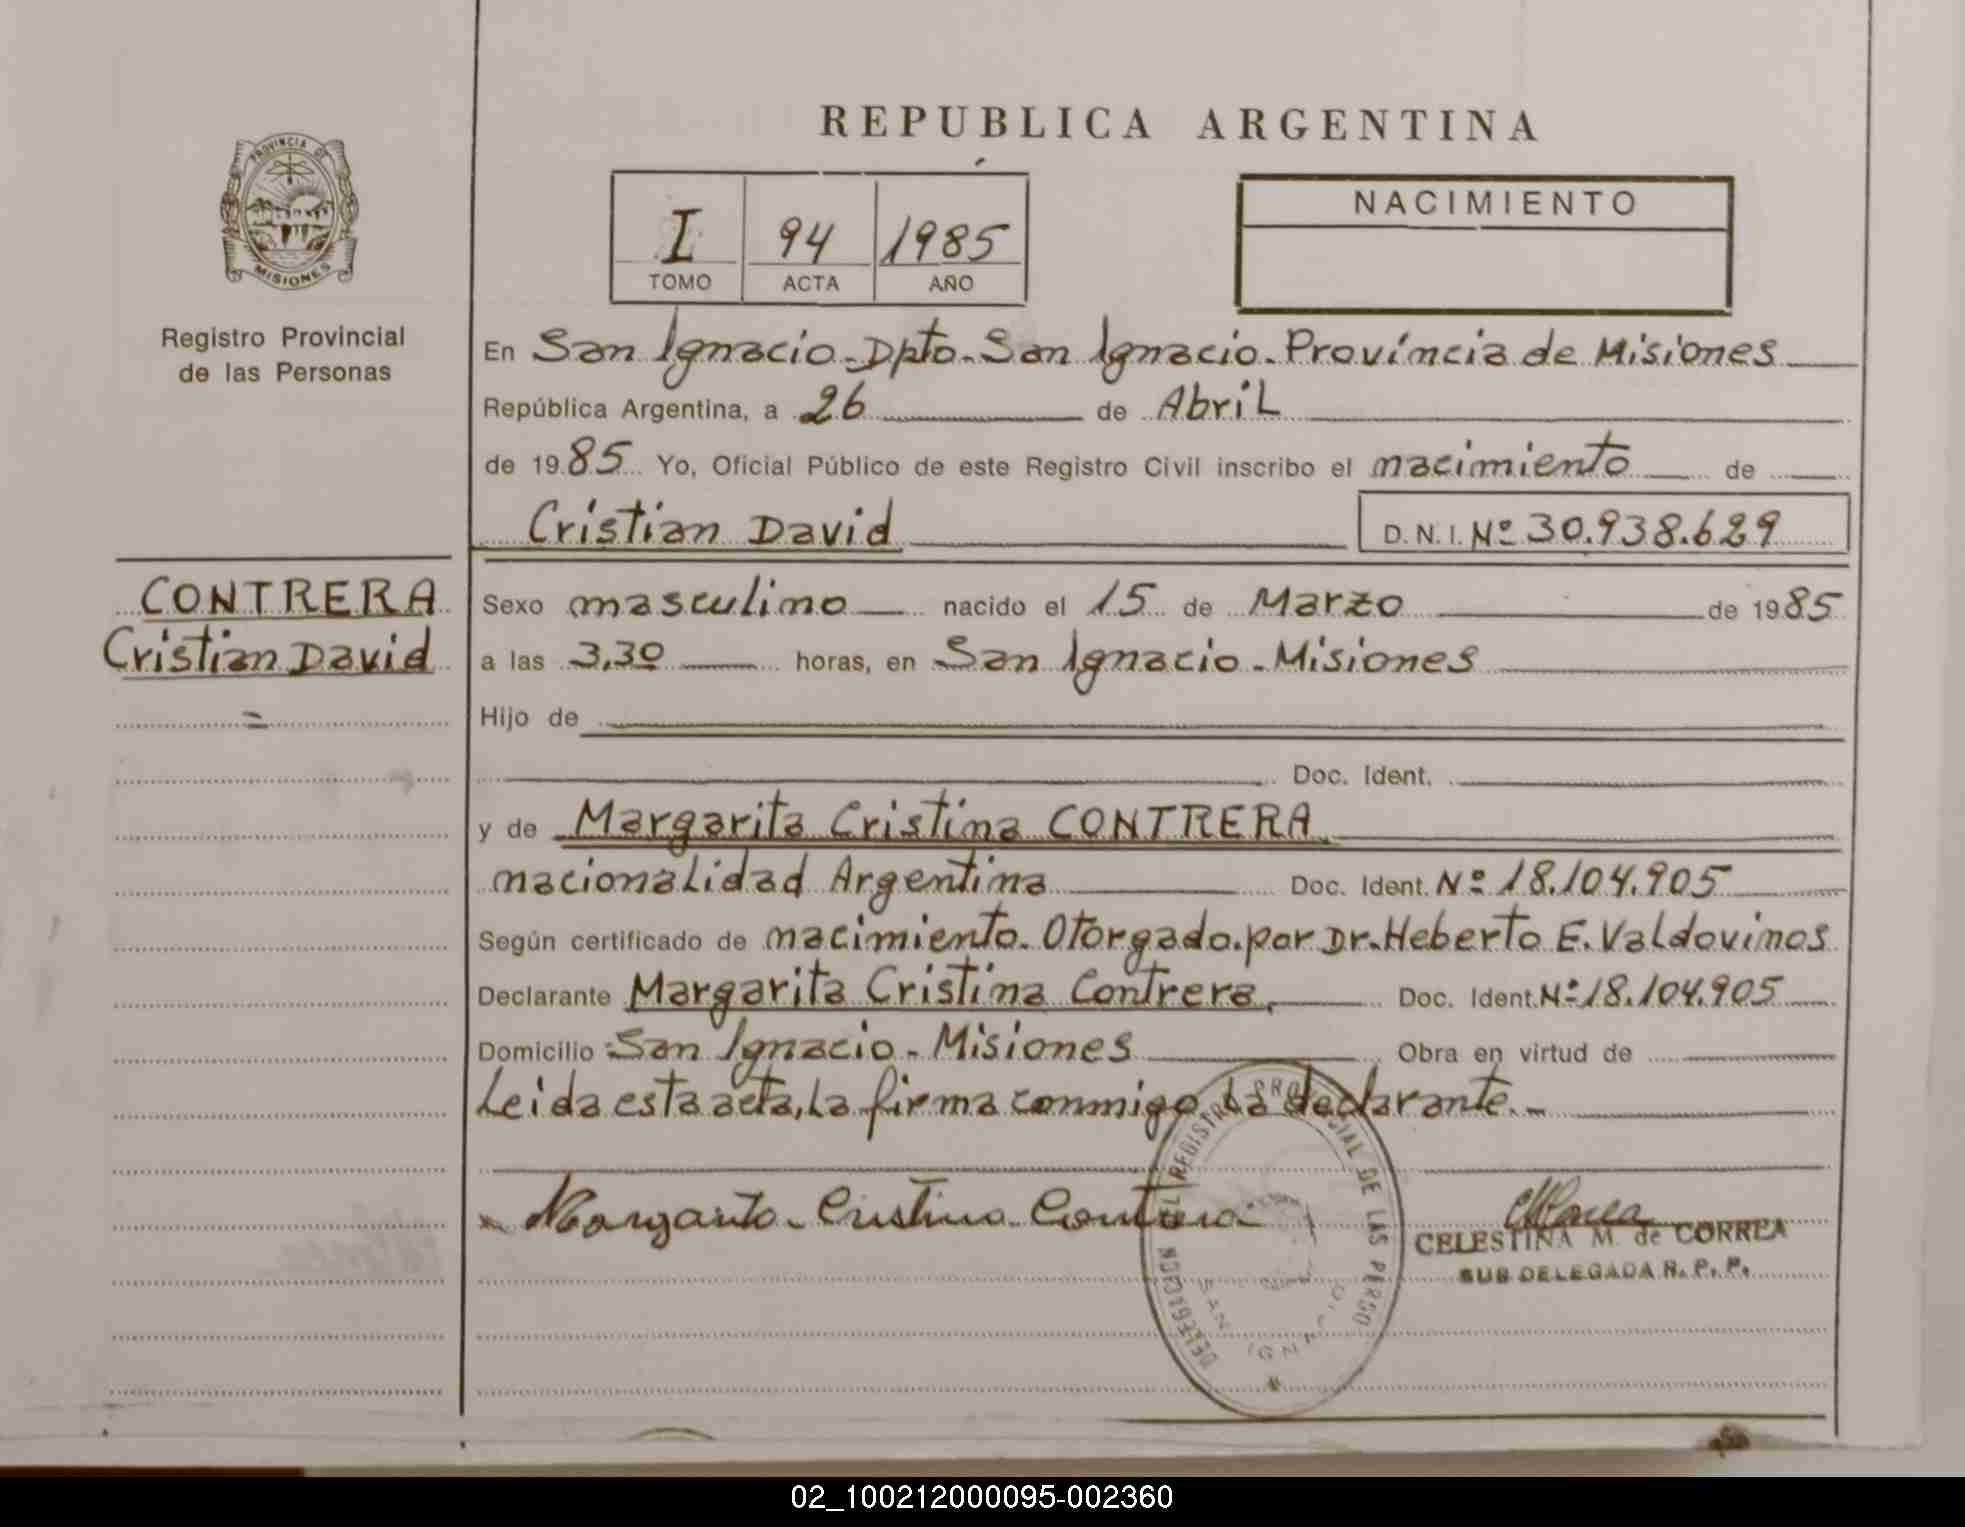 PROVINCIA DE
MISIONES
Registro Provincial
de las Personas
REPUBLICA ARGENTINA
I 94 1985
TOMO ACTA AÑO
NACIMIENTO
En San Ignacio - Dpto - San Ignacio - Provincia de Misiones
República Argentina, a 26 de Abril
de 1985 Yo, Oficial Público de este Registro Civil inscribo el nacimiento de
Cristian David D.N.I. Nº 30.938.629
CONTRERA
Cristian David
=
Sexo masculino nacido el 15 de Marzo de 1985
a las 3,30 horas, en San Ignacio - Misiones
Hijo de
Doc. Ident.
y de Margarita Cristina CONTRERA
nacionalidad Argentina Doc. Ident. Nº 18.104.905
Según certificado de nacimiento. Otorgado por Dr. Heberto E. Valdovinos
Declarante Margarita Cristina Contrera, Doc. Ident. Nº 18.104.905
Domicilio San Ignacio - Misiones Obra en virtud de
Leida esta acta, La firma conmigo La declarante.-
Margarita Cristina Contrera
DELEGACION DEL REGISTRO PROVINCIAL DE LAS PERSO
SAN IGNACIO
CELESTINA M. de CORREA
SUB DELEGADA R. P. P.
02_100212000095-002360